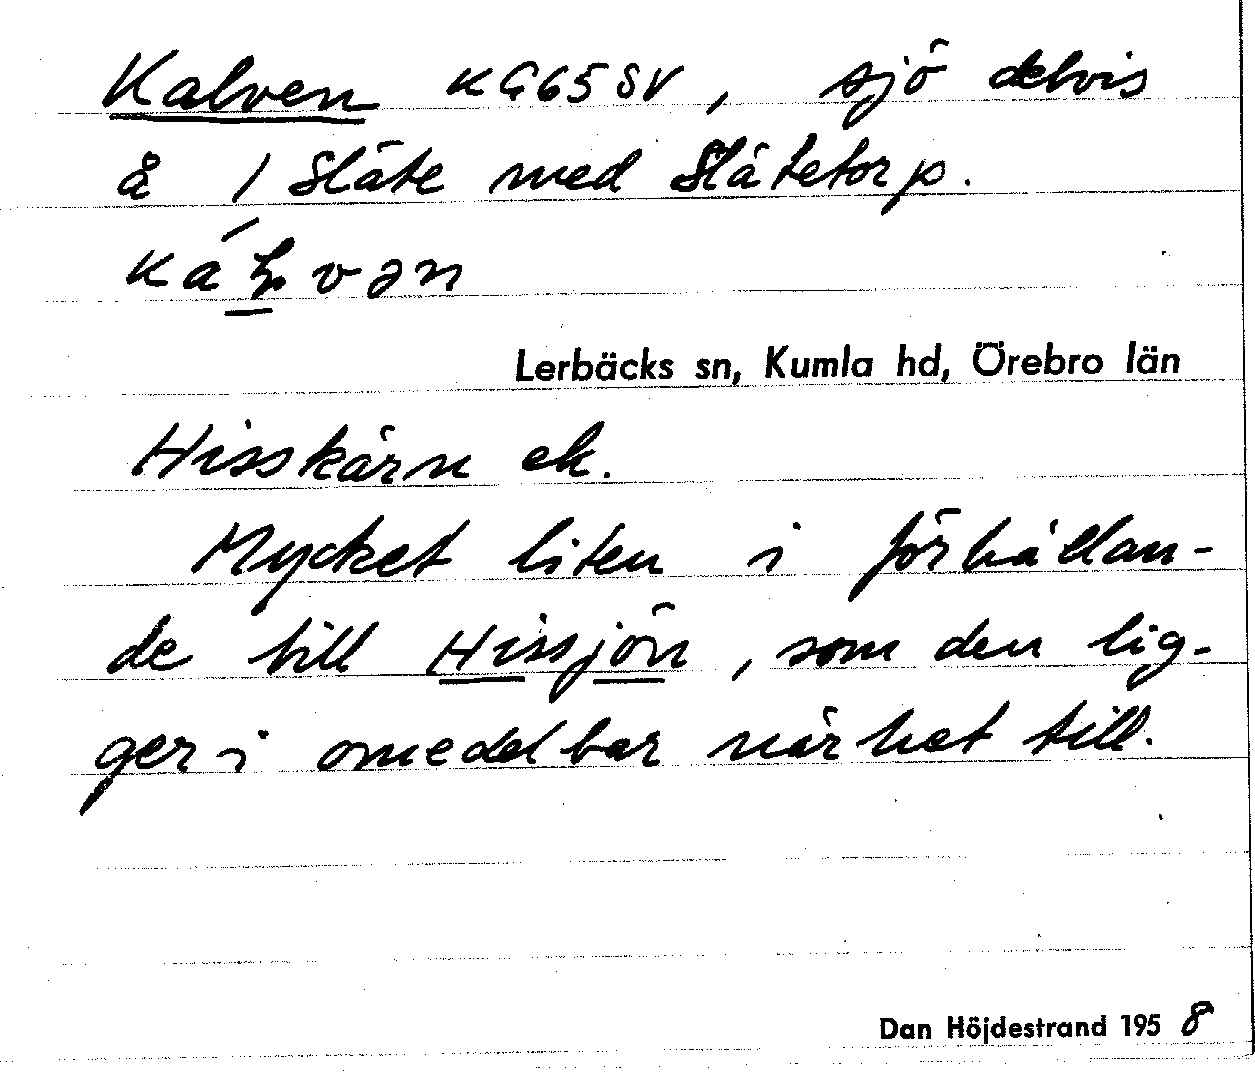 Kalven KG65SV, sjö delvis
å 1 Släte med Slätetorp.
Lerbäcks sn, Kumla hd, Örebro län
Hisskärn ek.
Mycket liten i förhållan-
de till Hissjön, som den lig-
ger i omedelbar närhet till.
Dan Höjdestrand 1958